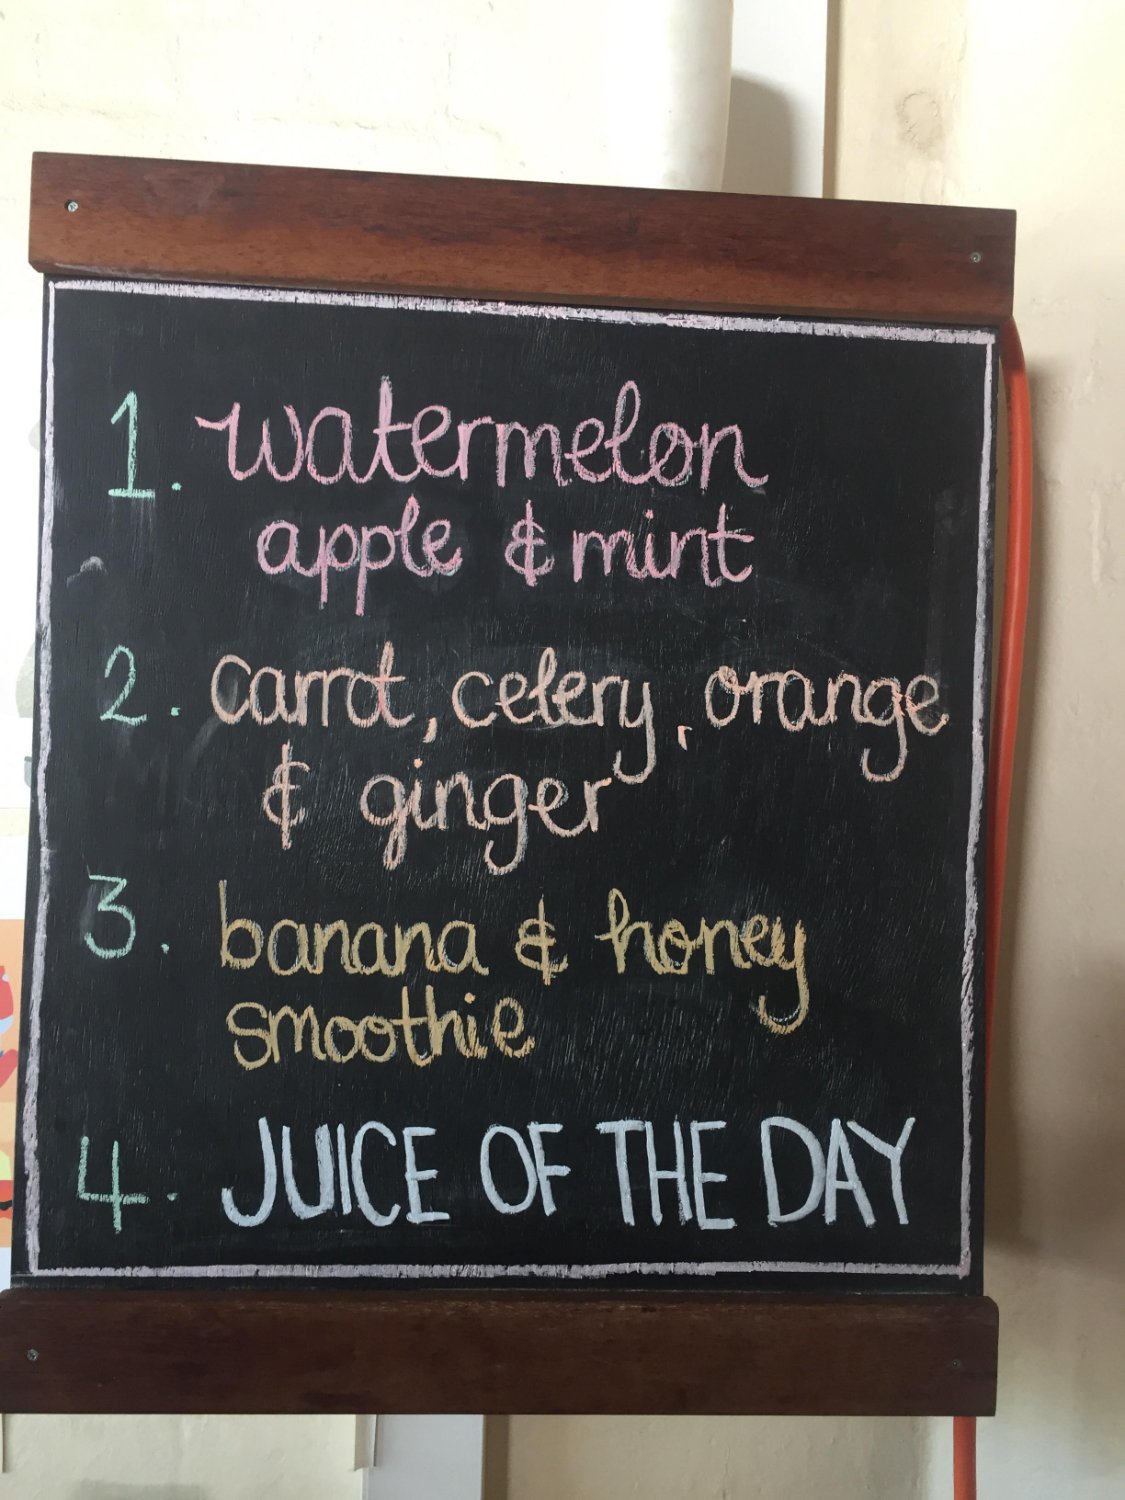 1. watermelon
apple & mint
2. carrot, celery, orange
& ginger
3. banana & honey
smoothie
4. JUICE OF THE DAY